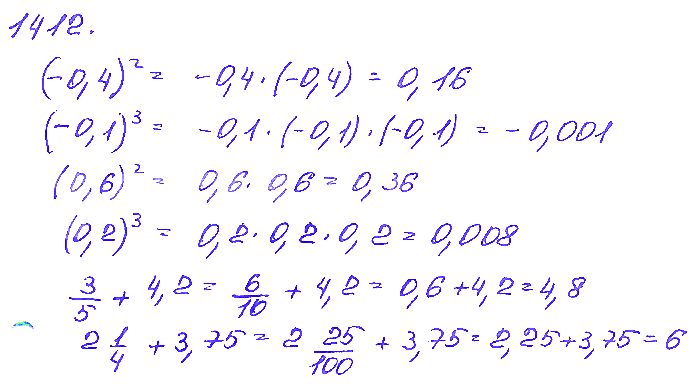 1412.
(-0,4)² = -0,4·(-0,4) = 0,16
(-0,1)³ = -0,1·(-0,1)·(-0,1) = -0,001
(0,6)² = 0,6·0,6 = 0,36
(0,2)³ = 0,2·0,2·0,2 = 0,008
3/5 + 4,2 = 6/10 + 4,2 = 0,6+4,2=4,8
2 1/4 + 3,75 = 2 25/100 + 3,75 = 2,25+3,75=6